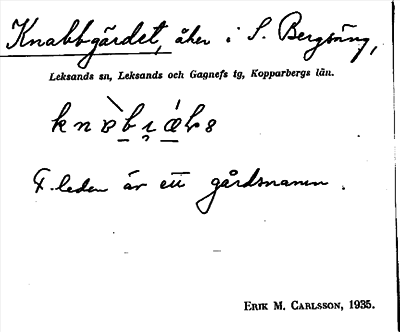 Knabbgärdet, åker i S. Bergsäng,
Leksands sn, Leksands och Gagnefs tg, Kopparbergs län.
F. leden är ett gårdsnamn.
ERIK M. CARLSSON, 1935.